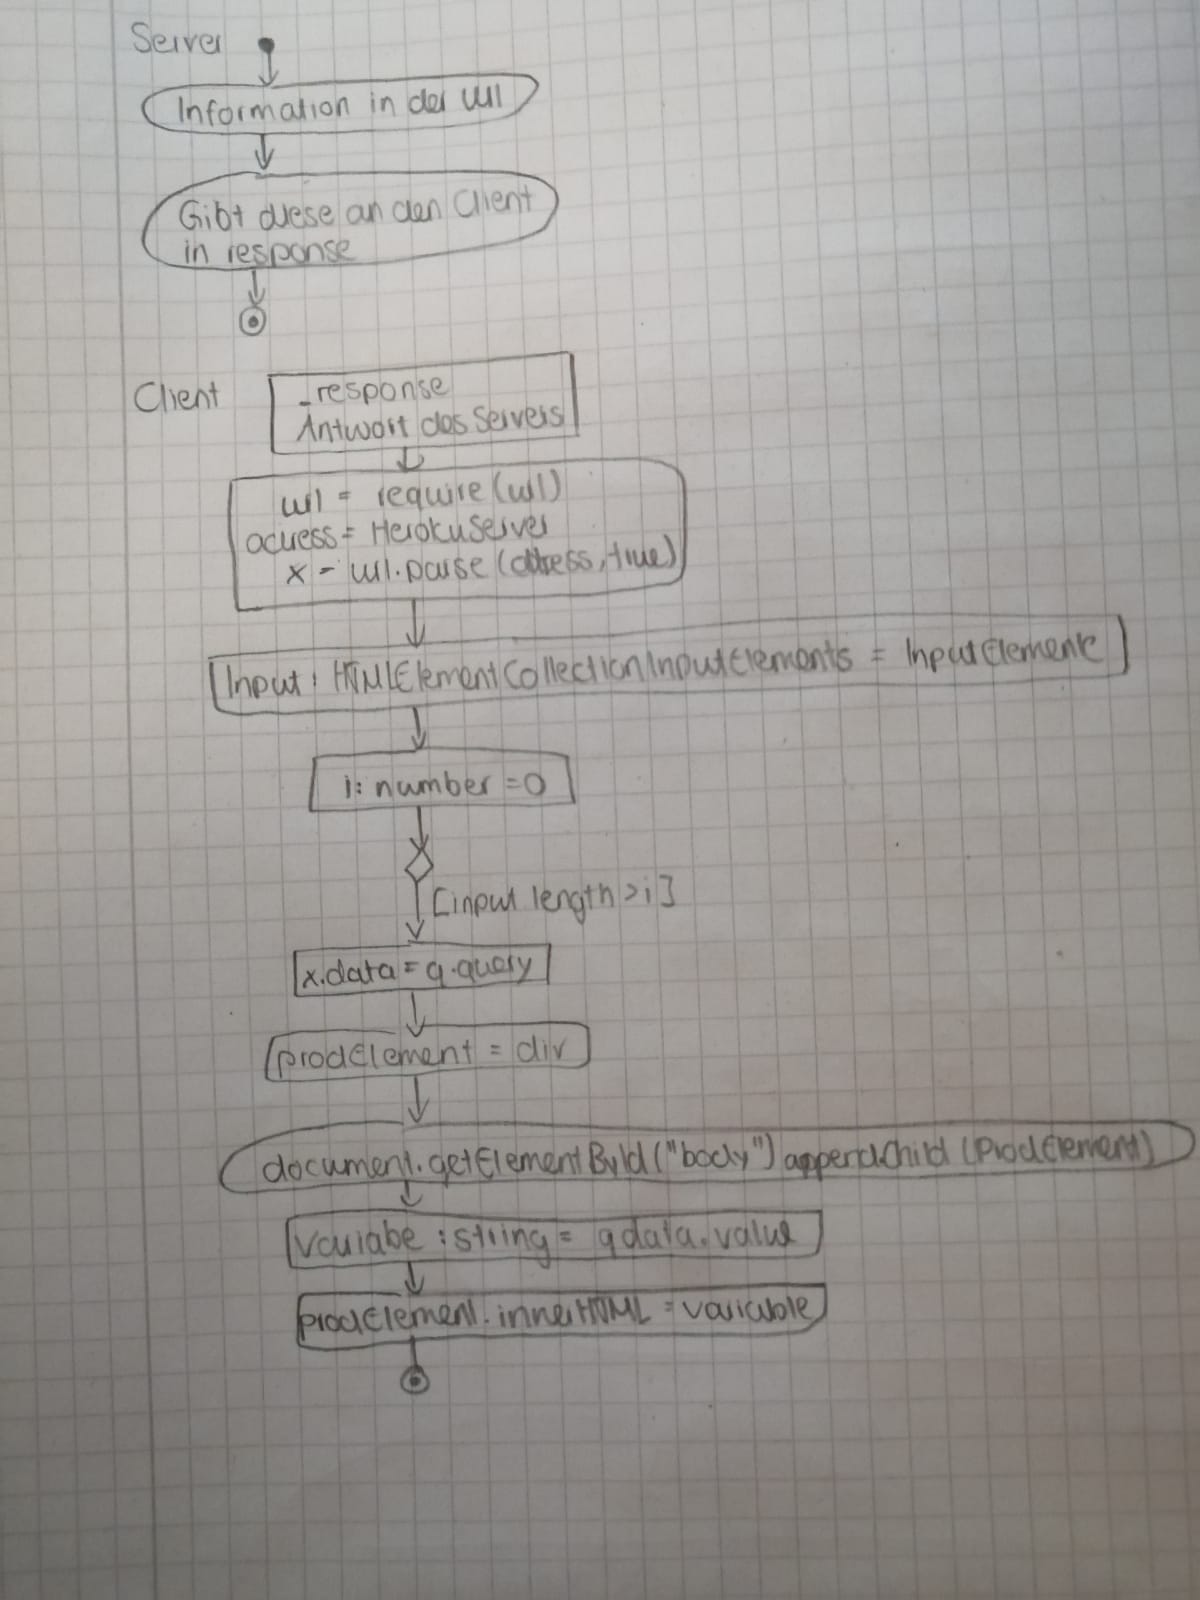 Server
Information in der url
Gibt diese an den Client
in response
Client
_response
Antwort des Servers
url = require(url)
adress = HerokuServer
x = url.parse(adress, true)
Input: HTMLElementCollectionInputElements = InputElemente
i: number = 0
[input length > i]
x.data = q.query
prodElement = div
document.getElementById("body") appendChild (ProdElement)
Variabe : string = qdata.value
prodElement.innerHTML = variable